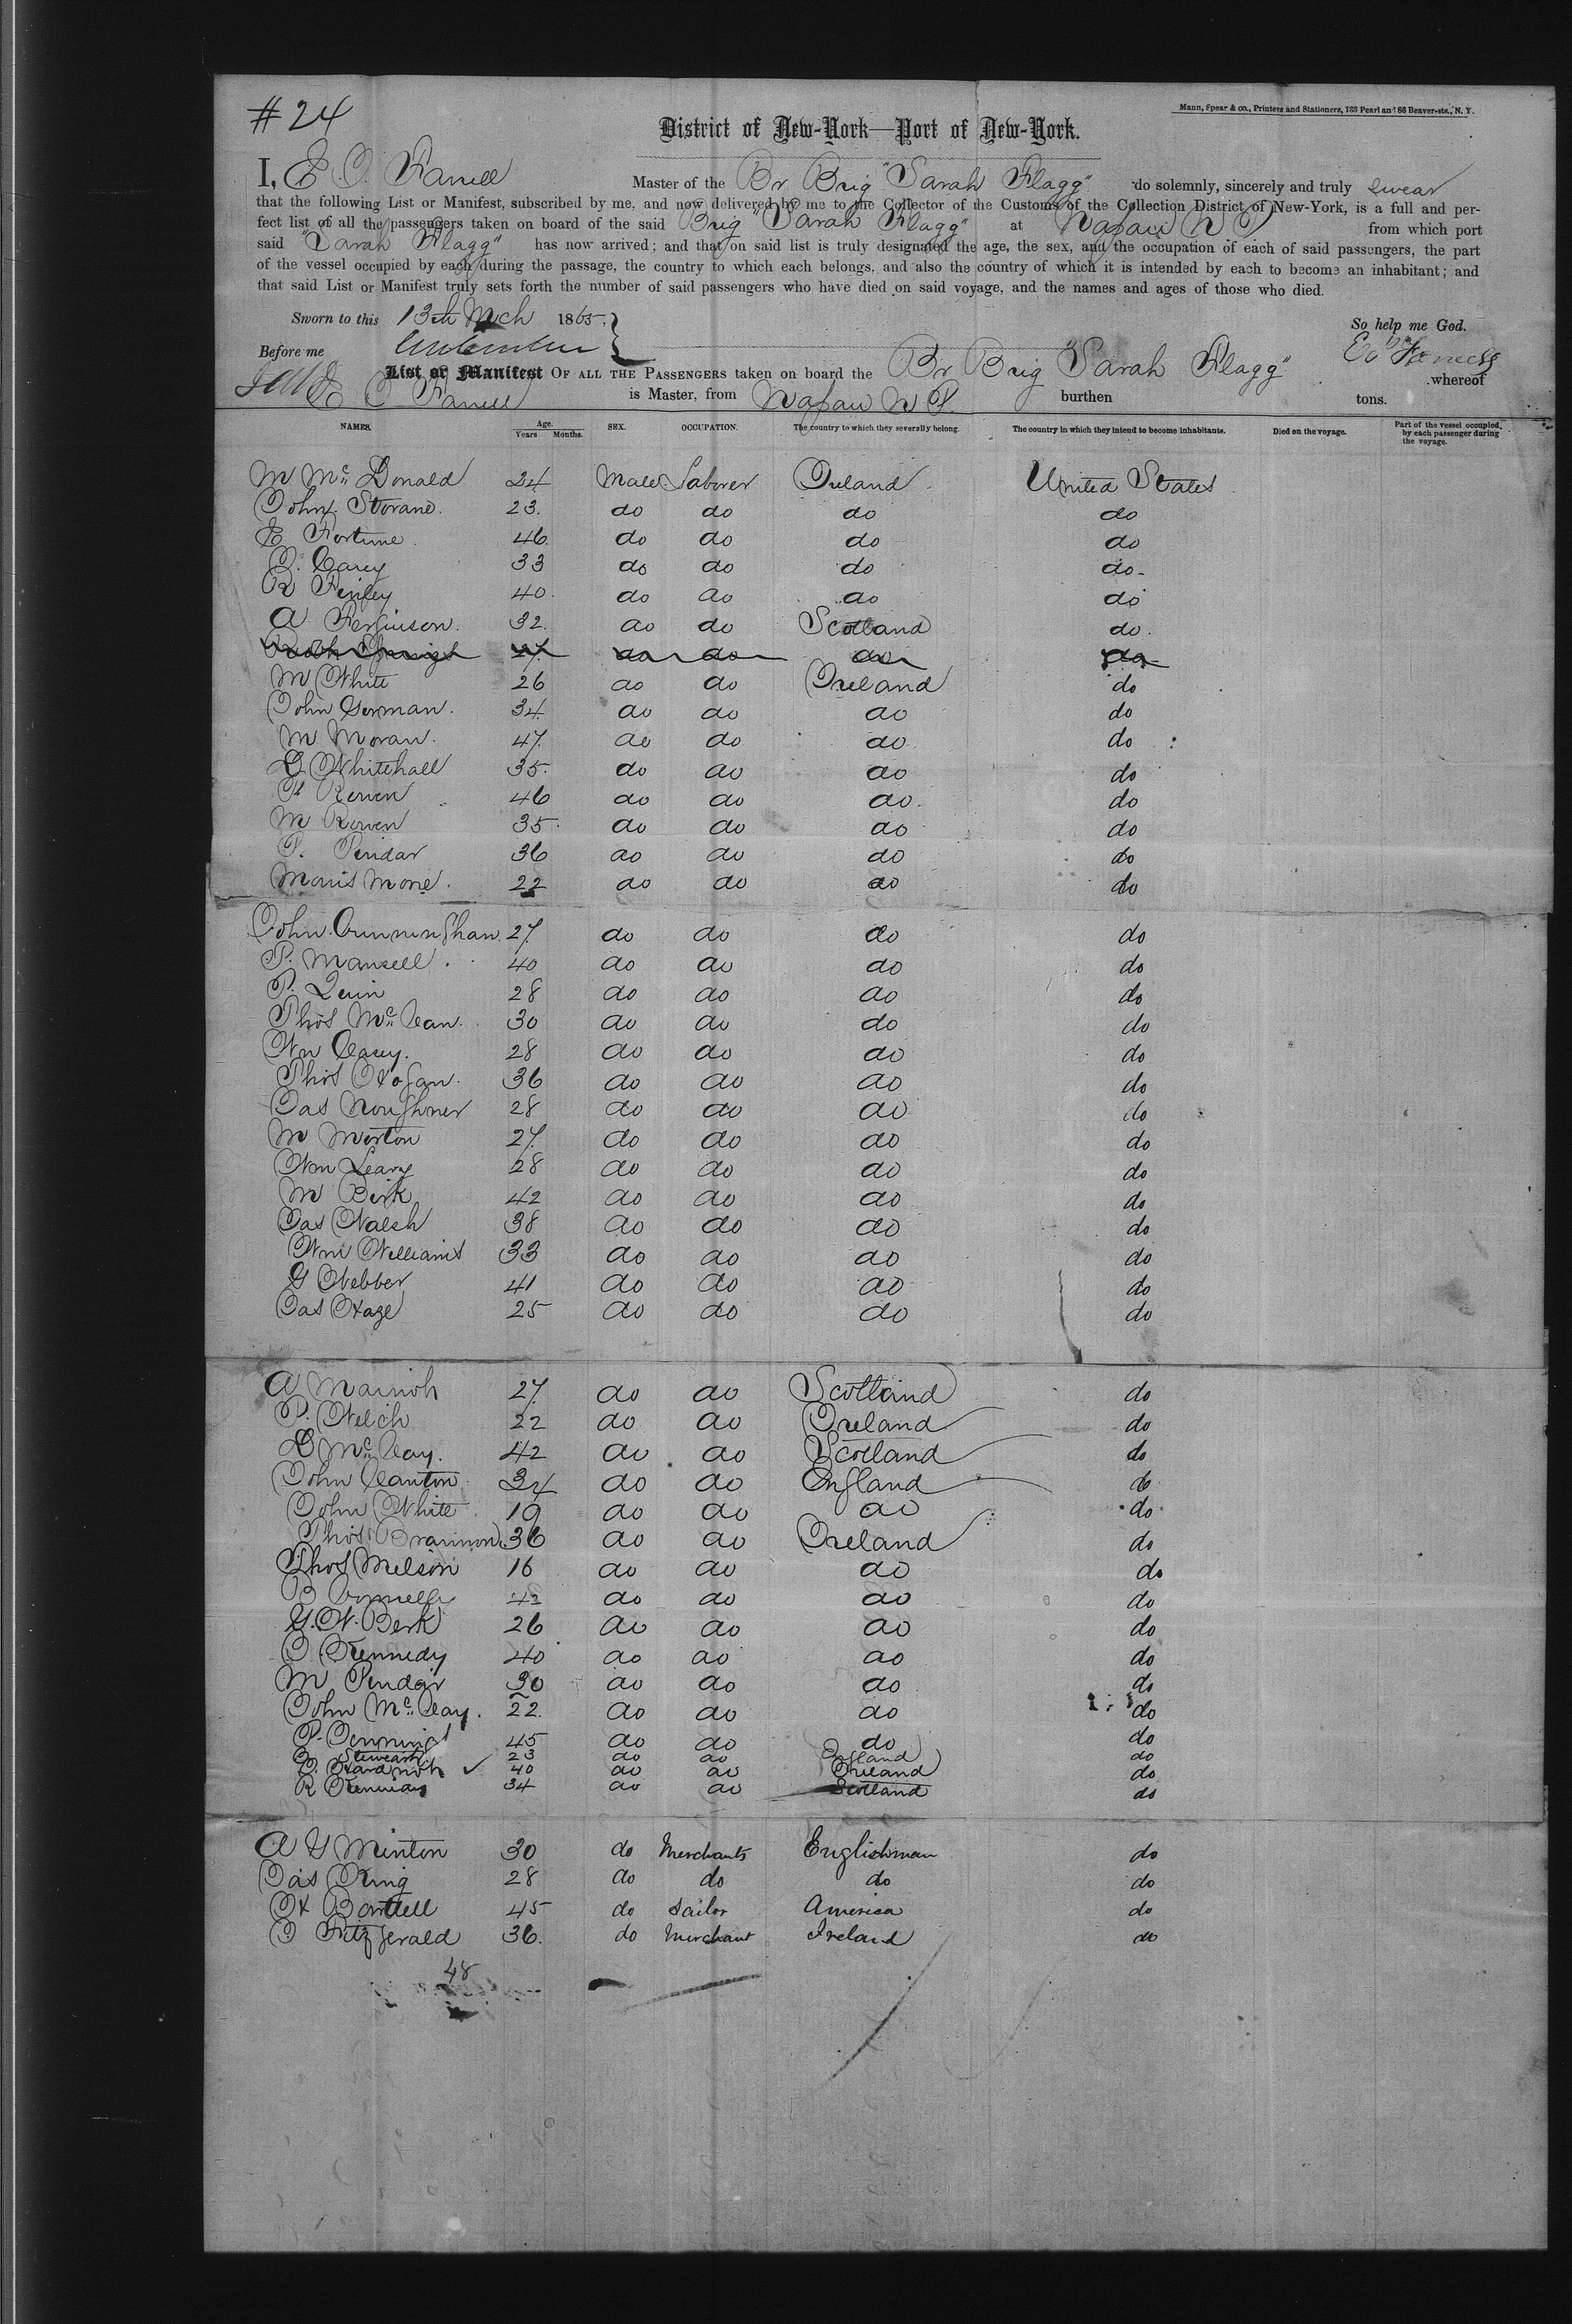 #24
Mann, Spear & co., Printers and Stationers, 133 Pearl and 86 Beaver-sts., N. Y.
District of New-York—Port of New-York.
I, E O. Farrell Master of the Br Brig "Sarah Flagg" do solemnly, sincerely and truly swear
that the following List or Manifest, subscribed by me, and now delivered by me to the Collector of the Customs of the Collection District of New-York, is a full and per-
fect list of all the passengers taken on board of the said Brig "Sarah Flagg" at Nassau N P from which port
said "Sarah Flagg" has now arrived; and that on said list is truly designated the age, the sex, and the occupation of each of said passengers, the part
of the vessel occupied by each during the passage, the country to which each belongs, and also the country of which it is intended by each to become an inhabitant; and
that said List or Manifest truly sets forth the number of said passengers who have died on said voyage, and the names and ages of those who died.
Sworn to this 13th Mch 1865. So help me God.
Before me
List or Manifest OF ALL THE PASSENGERS taken on board the Br Brig "Sarah Flagg" whereof
E O Farrell is Master, from Nassau N P. burthen tons.
NAMES. Age. Years Months. SEX. OCCUPATION. The country to which they severally belong. The country in which they intend to become inhabitants. Died on the voyage. Part of the vessel occupied, by each passenger during the voyage.
M Mc Donald 24 Male Laborer Ireland United States
John Storane 23. do do do do
E Fortune 46. do do do do
J. Carey 33 do do do do
R Finley 40. do do do do
A Ferguison. 32. do do Scotland do.
27. do do do do
M White 26 do do Ireland do
John Gorman. 34. do do do do
M Moran. 47. do do do do
G Whitehall 35. do do do do
P Rowen 46 do do do. do
M Rowen 35. do do do do
P. Pindar 36 do do do do
Morris Mone. 22 do do do do
John Cunningham. 27. do do do do
P. Mansell. 40 do do do do
P. Quin 28 do do do do
Thos Mc Cean. 30 do do do do
Wm Casey. 28 do do do do
Thos Hogan. 36 do do do do
Jas Noughner 28 do do do do
M Morton 27. do do do do
Wm Leary 28 do do do do
M Birk 42 do do do do
Jas Walsh 38 do do do do
Wm Williams 33 do do do do
G Webber 41 do do do do
Jas Haze 25 do do do do
A Marrioh 27. do do Scotland do
P. Welch 22 do do Ireland do
D Mc Cay. 42 do do Scotland do
John Canton 34 do do England do
John White 19 do do do do
Thos Brannon 36 do do Ireland do
Thos Melson 16 do do do do
B Connelly 42 do do do do
G. W. Berk 26 do do do do
J Kennedy 40 do do do do
M Pindar 30 do do do do
John Mc Cay. 22. do do do do
P. Jennings 45 do do do do
Stewart 23 do do England do
40 do do Ireland do
R 34 do do Scotland do
A G Minton 30 do Merchants Englishman do
Jas King 28 do do do do
H Bartlell 45 do Sailor America do
J Fitzgerald 36. do Merchant Ireland do
48